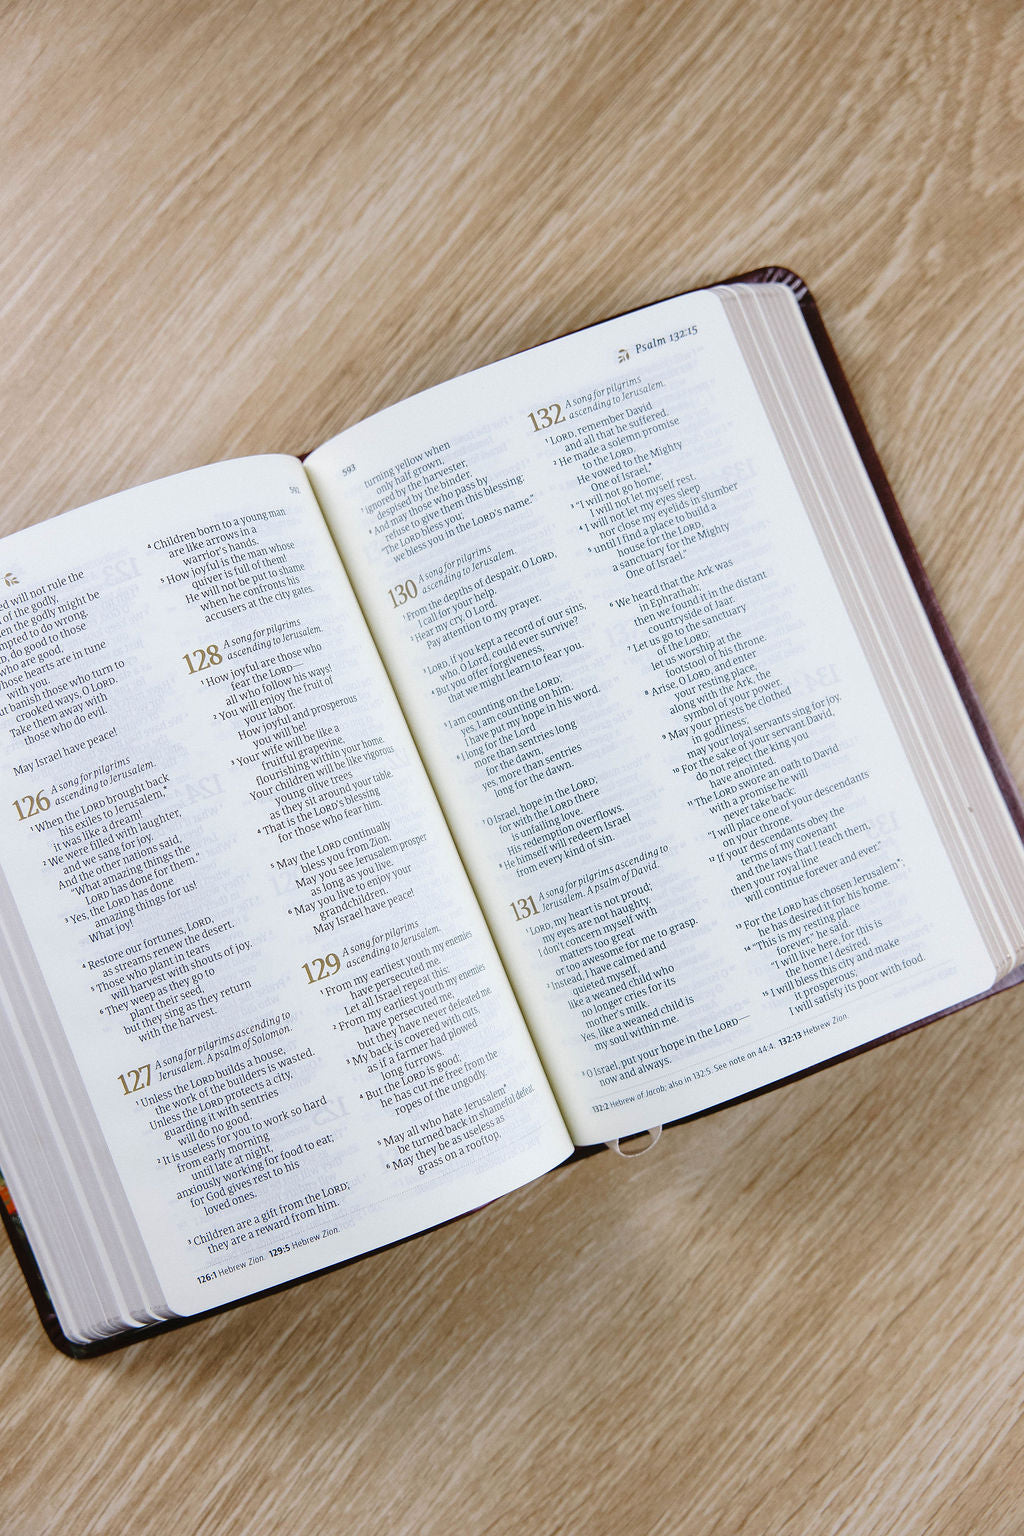 ed will not rule the
of the godly,
en the godly might be
mpted to do wrong.
do good to those
who are good,
hose hearts are in tune
with you.
ut banish those who turn to
crooked ways, O LORD.
Take them away with
those who do evil.
May Israel have peace!
126 A song for pilgrims
ascending to Jerusalem.
1 When the LORD brought back
his exiles to Jerusalem,*
it was like a dream!
2 We were filled with laughter,
and we sang for joy.
And the other nations said,
“What amazing things the
LORD has done for them.”
3 Yes, the LORD has done
amazing things for us!
What joy!
4 Restore our fortunes, LORD,
as streams renew the desert.
5 Those who plant in tears
will harvest with shouts of joy.
6 They weep as they go to
plant their seed,
but they sing as they return
with the harvest.
127 A song for pilgrims ascending to
Jerusalem. A psalm of Solomon.
1 Unless the LORD builds a house,
the work of the builders is wasted.
Unless the LORD protects a city,
guarding it with sentries
will do no good.
2 It is useless for you to work so hard
from early morning
until late at night,
anxiously working for food to eat;
for God gives rest to his
loved ones.
3 Children are a gift from the LORD;
they are a reward from him.
126:1 Hebrew Zion. 129:5 Hebrew Zion.
592
4 Children born to a young man
are like arrows in a
warrior’s hands.
5 How joyful is the man whose
quiver is full of them!
He will not be put to shame
when he confronts his
accusers at the city gates.
128 A song for pilgrims
ascending to Jerusalem.
1 How joyful are those who
fear the LORD—
all who follow his ways!
2 You will enjoy the fruit of
your labor.
How joyful and prosperous
you will be!
3 Your wife will be like a
fruitful grapevine,
flourishing within your home.
Your children will be like vigorous
young olive trees
as they sit around your table.
4 That is the LORD’s blessing
for those who fear him.
5 May the LORD continually
bless you from Zion.
May you see Jerusalem prosper
as long as you live.
6 May you live to enjoy your
grandchildren.
May Israel have peace!
129 A song for pilgrims
ascending to Jerusalem.
1 From my earliest youth my enemies
have persecuted me.
Let all Israel repeat this:
2 From my earliest youth my enemies
have persecuted me,
but they have never defeated me.
3 My back is covered with cuts,
as if a farmer had plowed
long furrows.
4 But the LORD is good;
he has cut me free from the
ropes of the ungodly.
5 May all who hate Jerusalem*
be turned back in shameful defeat.
6 May they be as useless as
grass on a rooftop,
593
turning yellow when
only half grown,
7 ignored by the harvester,
despised by the binder.
8 And may those who pass by
refuse to give them this blessing:
“The LORD bless you;
we bless you in the LORD’s name.”
130 A song for pilgrims
ascending to Jerusalem.
1 From the depths of despair, O LORD,
I call for your help.
2 Hear my cry, O Lord.
Pay attention to my prayer.
3 LORD, if you kept a record of our sins,
who, O Lord, could ever survive?
4 But you offer forgiveness,
that we might learn to fear you.
5 I am counting on the LORD;
yes, I am counting on him.
I have put my hope in his word.
6 I long for the Lord
more than sentries long
for the dawn,
yes, more than sentries
long for the dawn.
7 O Israel, hope in the LORD;
for with the LORD there
is unfailing love.
His redemption overflows.
8 He himself will redeem Israel
from every kind of sin.
131 A song for pilgrims ascending to
Jerusalem. A psalm of David.
1 LORD, my heart is not proud;
my eyes are not haughty.
I don’t concern myself with
matters too great
or too awesome for me to grasp.
2 Instead, I have calmed and
quieted myself,
like a weaned child who
no longer cries for its
mother’s milk.
Yes, like a weaned child is
my soul within me.
3 O Israel, put your hope in the LORD—
now and always.
132:2 Hebrew of Jacob; also in 132:5. See note on 44:4. 132:13 Hebrew Zion.
Psalm 132:15
132 A song for pilgrims
ascending to Jerusalem.
1 LORD, remember David
and all that he suffered.
2 He made a solemn promise
to the LORD.
He vowed to the Mighty
One of Israel,*
3 “I will not go home;
I will not let myself rest.
4 I will not let my eyes sleep
nor close my eyelids in slumber
5 until I find a place to build a
house for the LORD,
a sanctuary for the Mighty
One of Israel.”
6 We heard that the Ark was
in Ephrathah;
then we found it in the distant
countryside of Jaar.
7 Let us go to the sanctuary
of the LORD;
let us worship at the
footstool of his throne.
8 Arise, O LORD, and enter
your resting place,
along with the Ark, the
symbol of your power.
9 May your priests be clothed
in godliness;
may your loyal servants sing for joy.
10 For the sake of your servant David,
do not reject the king you
have anointed.
11 The LORD swore an oath to David
with a promise he will
never take back:
“I will place one of your descendants
on your throne.
12 If your descendants obey the
terms of my covenant
and the laws that I teach them,
then your royal line
will continue forever and ever.”
13 For the LORD has chosen Jerusalem*;
he has desired it for his home.
14 “This is my resting place
forever,” he said.
“I will live here, for this is
the home I desired.
15 I will bless this city and make
it prosperous;
I will satisfy its poor with food.